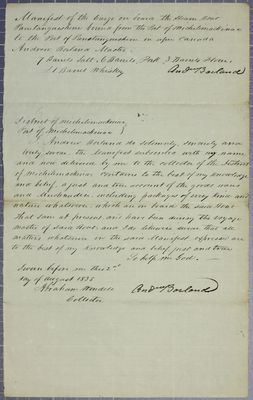 Manifest of the Cargo on board the Steam Boat
Penetanguishine bound from the Port of Michilimackinac
to the Port of Penetanguishine in upper Canada
Andrew Borland Master.
7 Barrels Salt, 6 Barrels, Pork 3 Barrels Flour.
1 Barrel Whisky Andw Borland
District of Michilimackinac
Port of Michilimackinac }
Andrew Borland do solemnly, sincerely and
truly swear the Manifest subscribed with my name
and now delivered by me to the collector of the District
of Michilimackinac contains to the best of my knowledge
and belief, a just and true account of the goods wares
and Merchandise including packages of every kind and
nature whatsoever which are on board the said Boat
that I am at present and have been during the voyage
master of said Boat and I do likewise swear that all
matters whatsoever in the said Manifest expressed are
to the best of my knowledge and belief just and true
So help me God.
Sworn before me this 2d
day of August 1835
Abraham Wendell Andw Borland
Collector